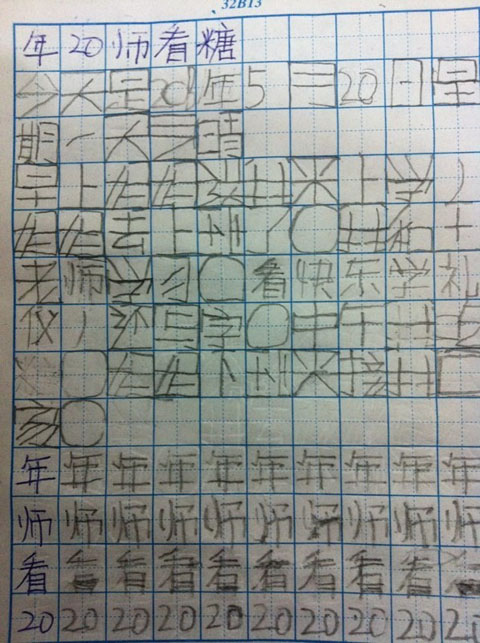 32B13
年20师看糖
今天是20年5月20日星
期一天气晴
早上妈妈送我来上学,
妈妈去上班了。我和
老师学习。看快乐学礼
仪,还写字。中午
。妈妈下班来接我
家。
年年年年年年年年年年
师师师师师师师师师师
看看看看看看看看看看
20 20 20 20 20 20 20 20 20 20